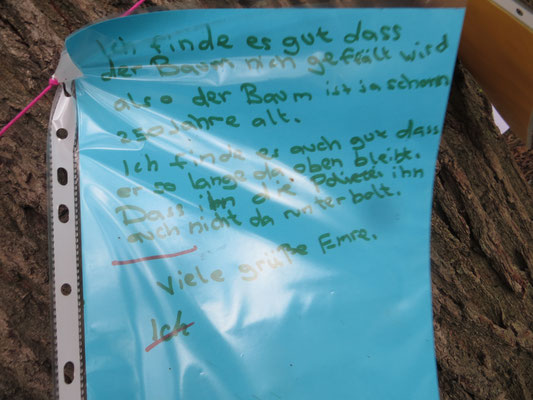 Ich finde es gut dass
der Baum nich geffält wird
also der Baum ist ja schonn
250 Jahre alt.
Ich finde es auch gut dass
er so lange da oben bleibt.
Dass ihn die Poliezei ihn
auch nicht da runter holt.
Viele grüße Emre.
Ich